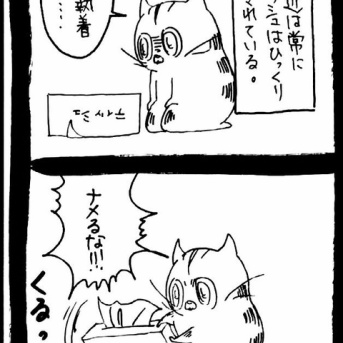 近は常に
シュはひっくり
れている。
執着
……
ティッシュ
ナメるな!!!
くるっ